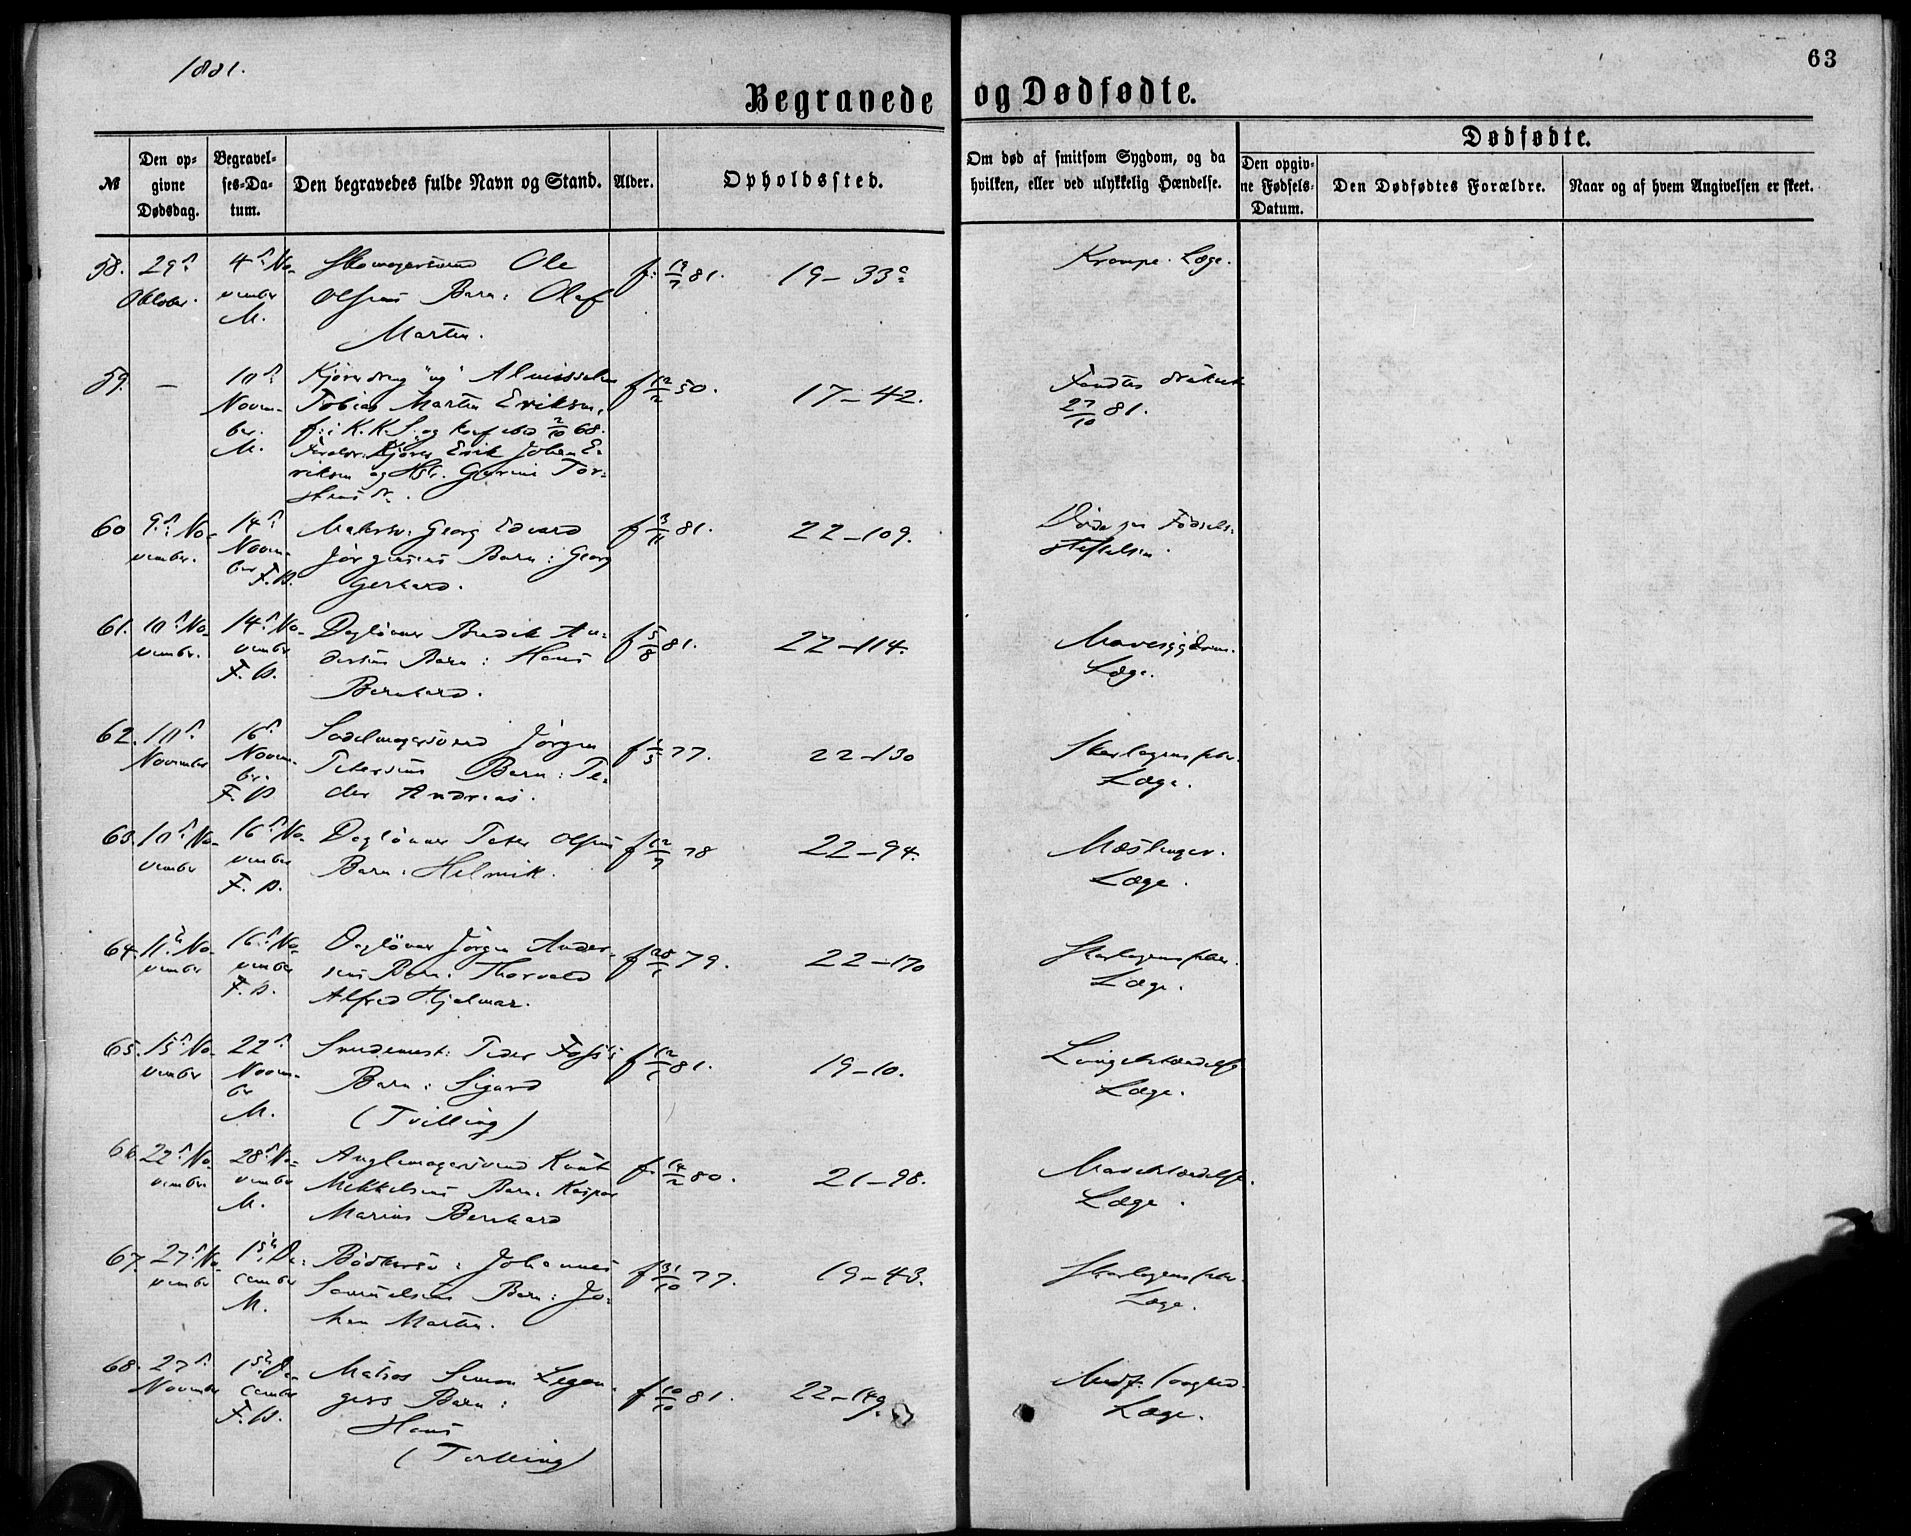 1881.
63
Begravede og Dødfødte.
№
Den op-
givne
Dødsdag.
Begravel-
ses-Da-
tum.
Den begravedes fulde Navn og Stand.
Alder.
Opholdssted.
Om død af smitsom Sygdom, og da
hvilken, eller ved ulykkelig Hændelse.
Dødfødte.
Den opgiv-
ne Fødsels-
Datum.
Den Dødfødtes Forældre.
Naar og af hvem Angivelsen er skeet.
58.
29
Oktober.
4 No-
vember
M.
Skomagersvend Ole
Olsens Barn: Olaf
Martin.
f. 19/7 81.
19-33
Krampe. Læge.
59.
-
10
Novem-
ber.
M.
Tobias Martin Eriksen,
f: i K. K. S. og
Erik Johan E-
riksen og
f 12/2 50.
17-42.
Fundet
27/10 81.
60
9 No-
vember.
14
Novem-
ber F. P.
Georg Edvard
Jørgensens Barn: Georg
Gerhard.
f 3/11 81.
22-109.
Døde paa Fødsels-
stiftelsen.
61.
10 No-
vember.
14 No-
vember
F. P.
Daglønner Bredik An-
dersens Barn: Hans
Bernhard.
f 5/8 81.
22-114.
Mavesygdom.
Læge.
62.
10
November
16
Novem-
ber.
F. P.
Sadelmagersvend Jørgen
Petersens Barn: Pe-
der Andreas.
f 1/5 77.
22-130
Skarlagensfeber.
Læge.
63.
10 No-
vember
16 No-
vember
F. P.
Daglønner Peter Olsens
Barn: Helmik.
f 12/7 78
22-94.
Mæslinger.
Læge.
64.
11 No-
vember
16 No-
vember
F. P.
Daglønner Jørgen Ander-
sens Barn: Thorvald
Alfred Hjalmar.
f 28/1 79.
22-170
Skarlagensfeber.
Læge.
65.
15 No-
vember
22
Novem-
ber
M.
Smedemest: Peder Foss's
Barn: Sigard
(Tvilling)
f 12/1 81.
19-10.
Lungebetændelse
Læge.
66.
22 No-
vember
28 No-
vember
M.
Knut
Mikkelsens Barn: Kaspar
Marius Bernhard
f. 14/2 80.
21-98.
Læge.
67.
27 No-
vember
1 De-
cember
M.
Bødkersv: Johannes
Samuelsens Barn: Jo-
han Martin.
f 31/10 77.
19-43.
Skarlagensfeber.
Læge.
68.
27
November
1 De-
cember
F. P.
Matros Simon
Barn:
Hans
(Tvilling)
f 10/10 81.
22-149.
Medf: Svaghed.
Læge.